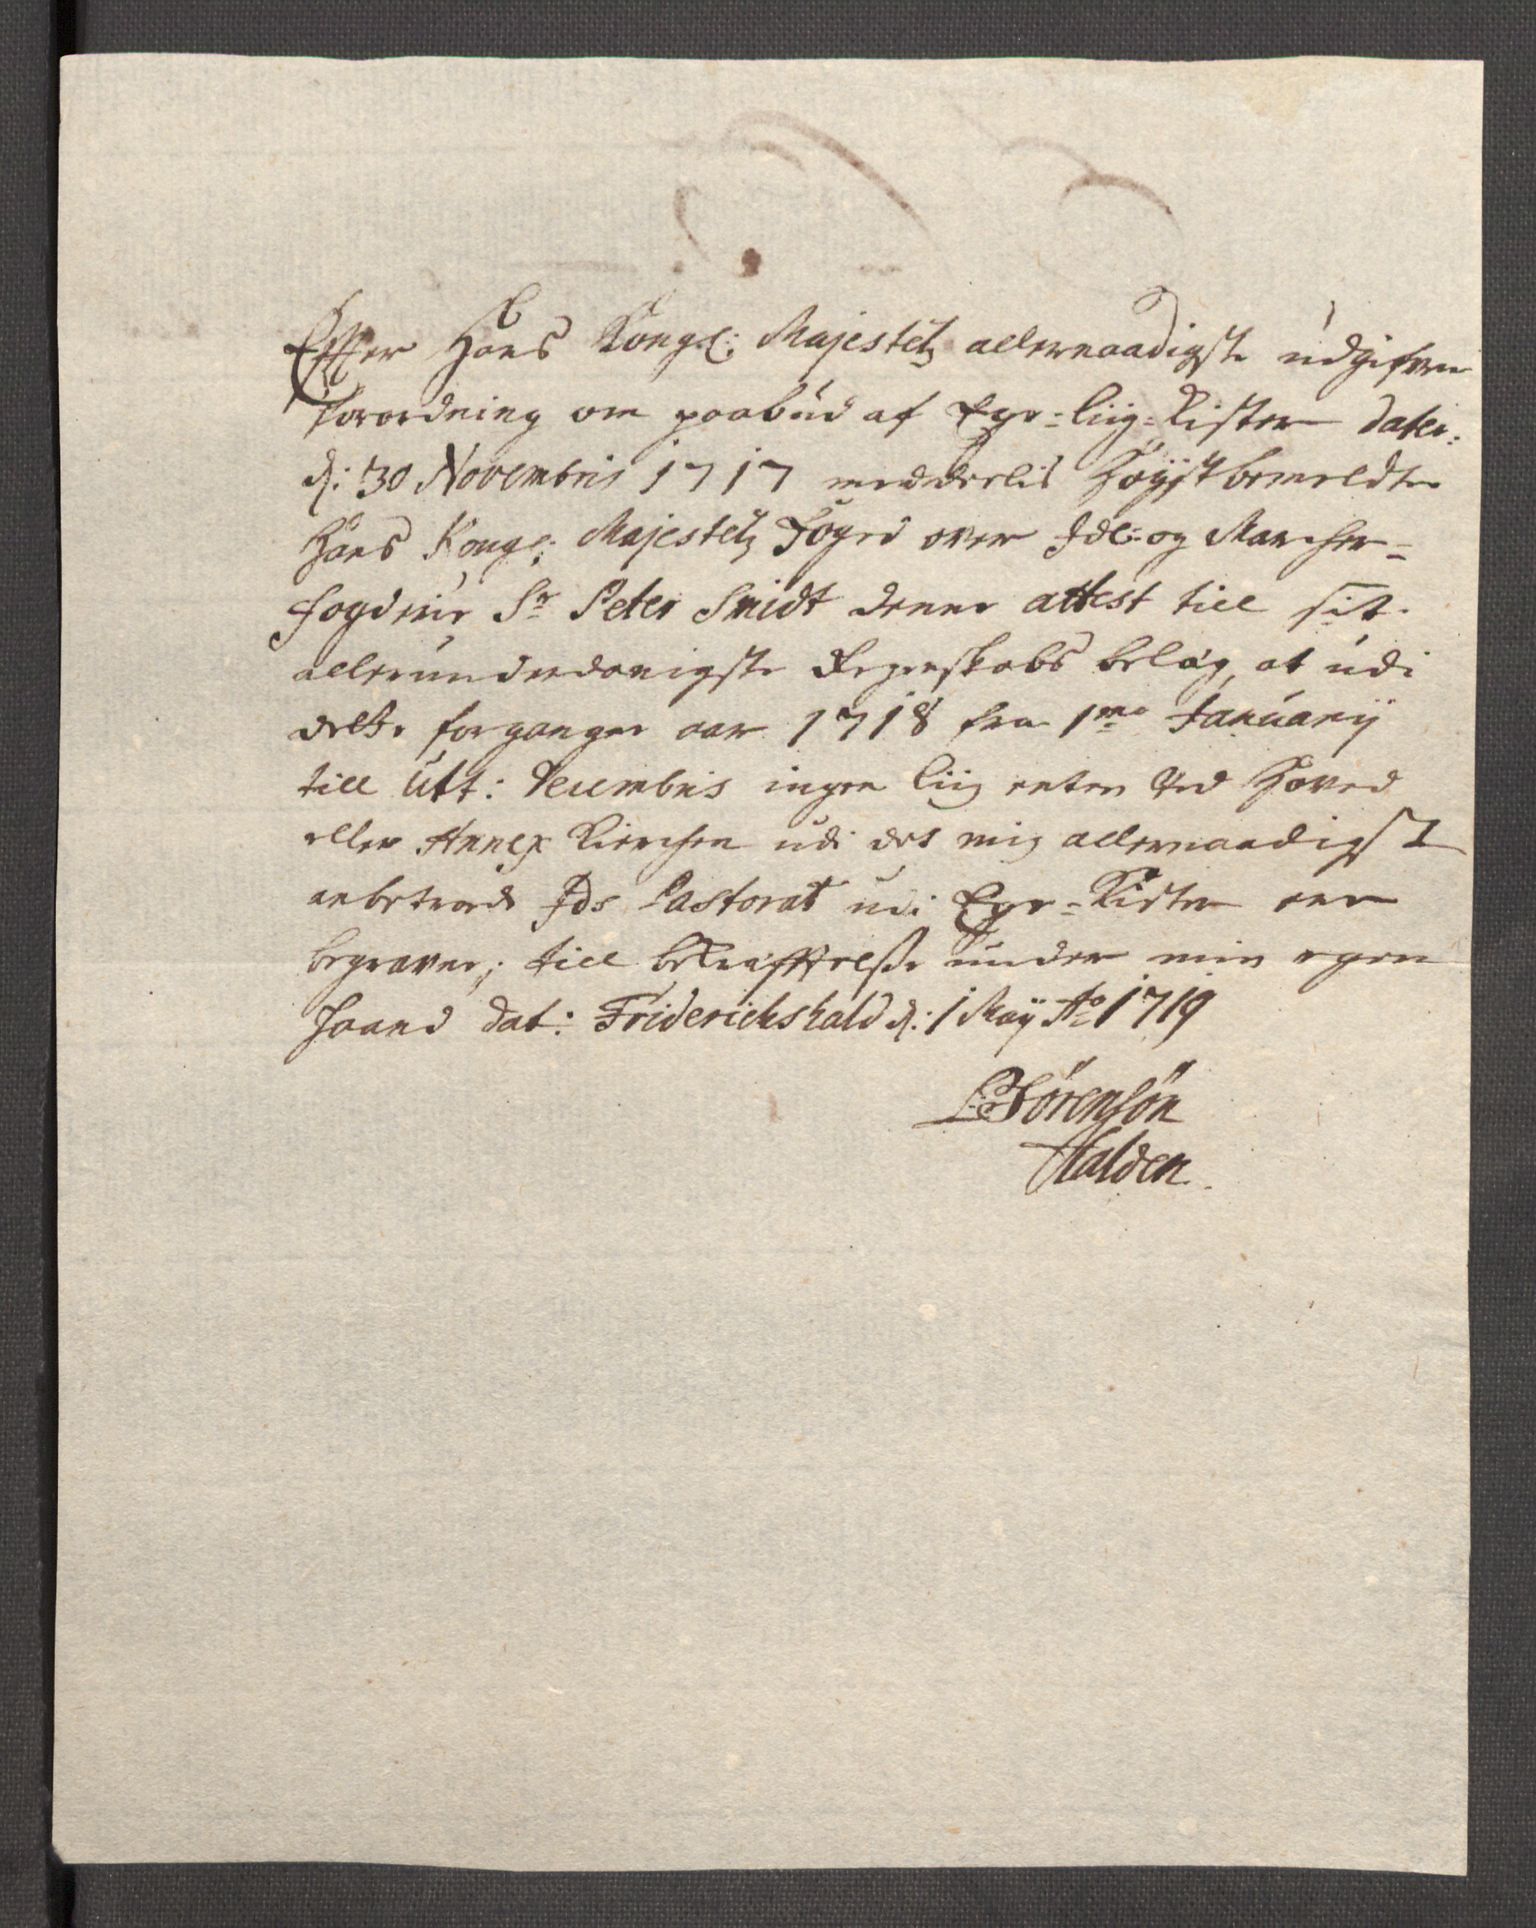 Effter Hans Kongl: Majestets allernaadigste udgifvene
forordning om paabud af Ege-Liig-Kister dater:
d: 30 Novembris 1717 meddeelis Høyst bemeldte
Hans Kongl: Majestets Foged over Ide- og Marcher-
fogderie Sr Peter Smidt denne attest till sit
allerunderdanigste Regenskabs belæg, at udi
dette forgangne aar 1718 fra 1mo Januarij
till Ult: Decembris ingen liig enten Ved Hoved
eller Annex Kierchen udi det mig allernaadigst
anbetroede Ids Pastorat udi Ege-Kister ere
begravne; till bekræfftelse under min egen
Haand dat: Friderichshald d: 1 Maij Ao 1719
Sørensøn
Halden